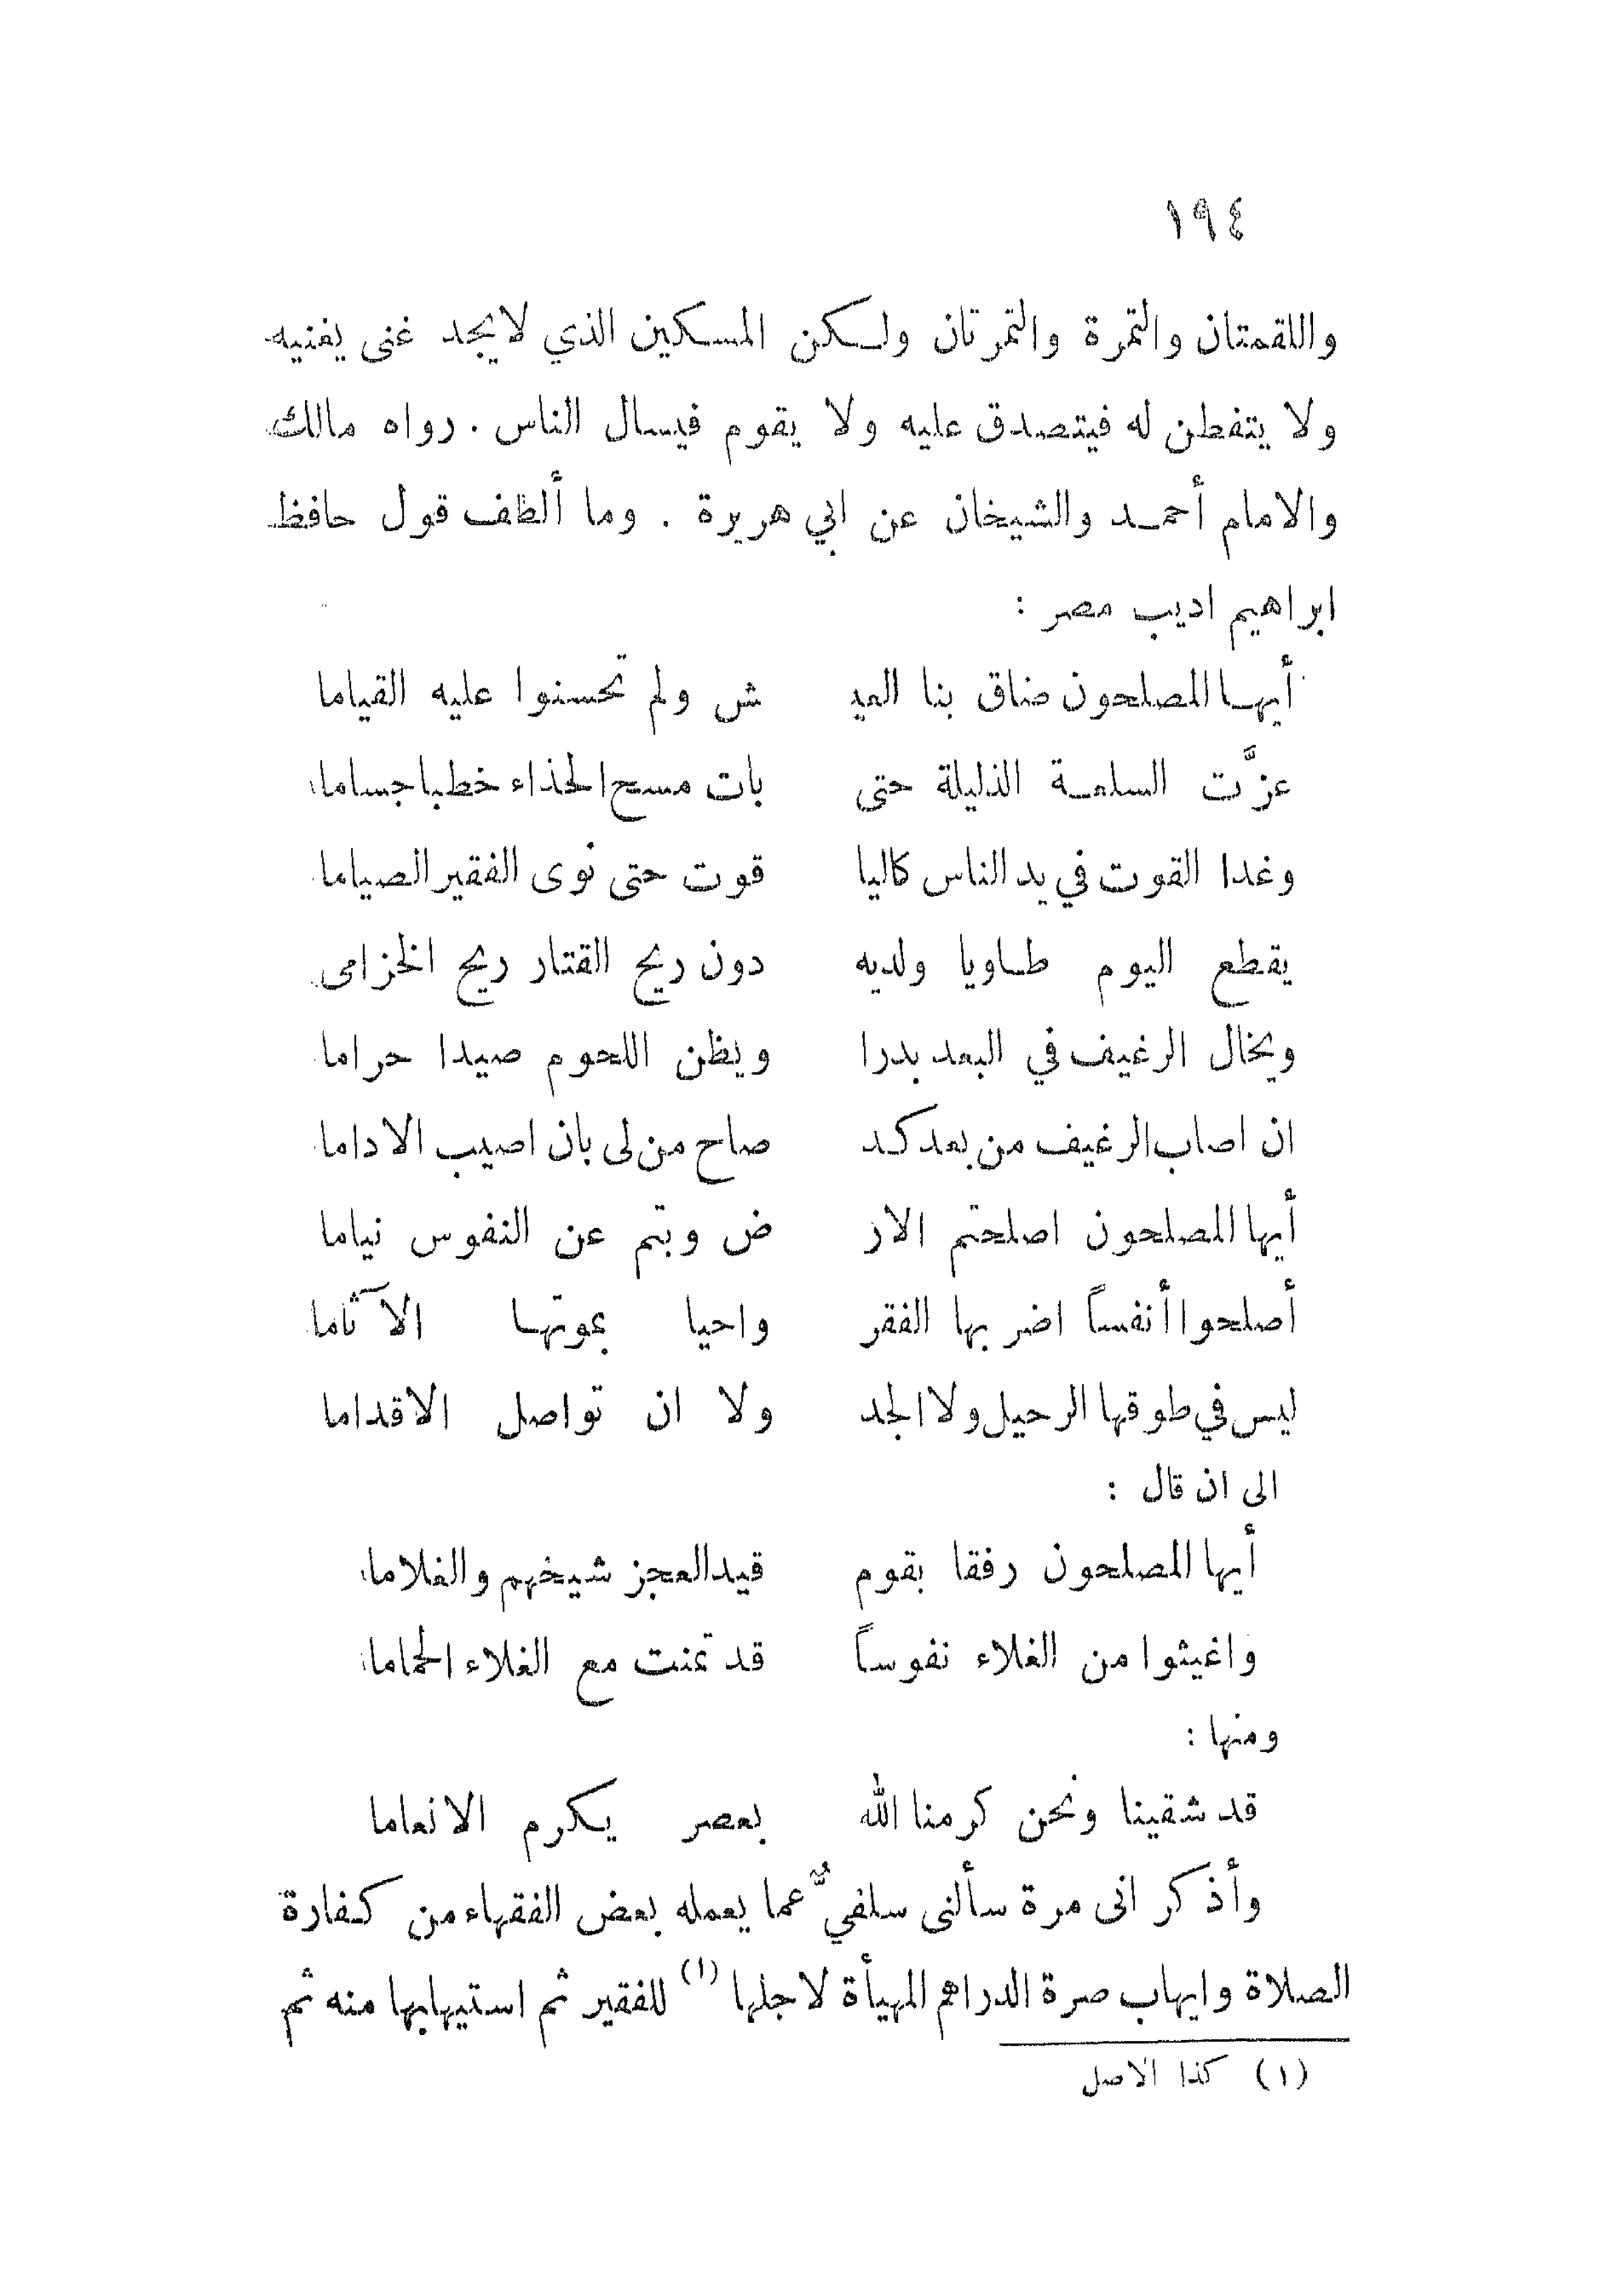 ١٩٤
واللقمتان والتمرة والتمرتان ولكن المسكين الذي لا يجد غنى يغنيه
ولا يتفطن له فيتصدق عليه ولا يقوم فيسال الناس . رواه مالك
والامام أحمد والشيخان عن ابي هريرة . وما ألطف قول حافظ
ابراهيم اديب مصر :
أيها المصلحون ضاق بنا العيـ ـش ولم تحسنوا عليه القياما
عزَّت السلعة الذليلة حتى بات مسح الحذاء خطبا جساما
وغدا القوت في يد الناس كاليا قوت حتى نوى الفقير الصياما
يقطع اليوم طاويا ولديه دون ريح القتار ريح الخزامى
ويخال الرغيف في البعد بدرا ويظن اللحوم صيدا حراما
ان اصاب الرغيف من بعد كد صاح من لى بان اصيب الاداما
أيها المصلحون اصلحتم الار ض وبتم عن النفوس نياما
أصلحوا أنفساً اضر بها الفقر واحيا بموتها الآثاما
ليس في طوقها الرحيل ولا الجد ولا ان تواصل الاقداما
الى ان قال :
أيها المصلحون رفقا بقوم قيد العجز شيخهم والغلاما
واغيثوا من الغلاء نفوساً قد تمنت مع الغلاء الحماما
ومنها :
قد شقينا ونحن كرمنا الله بعصر يكرم الانعاما
وأذكر انى مرة سألنى سلفيٌّ عما يعمله بعض الفقهاء من كفارة
الصلاة وايهاب صرة الدراهم المهيأة لاجلها (١) للفقير ثم استيهابها منه ثم
(١) كذا الاصل